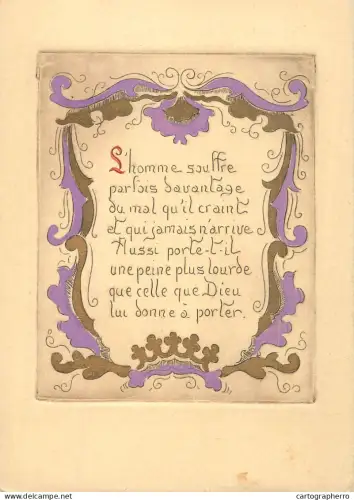 L'homme souffre
parfois davantage
du mal qu'il craint
et qui jamais n'arrive
Aussi porte-t-il
une peine plus lourde
que celle que Dieu
lui donne à porter.
delcampe.net
cartographerro